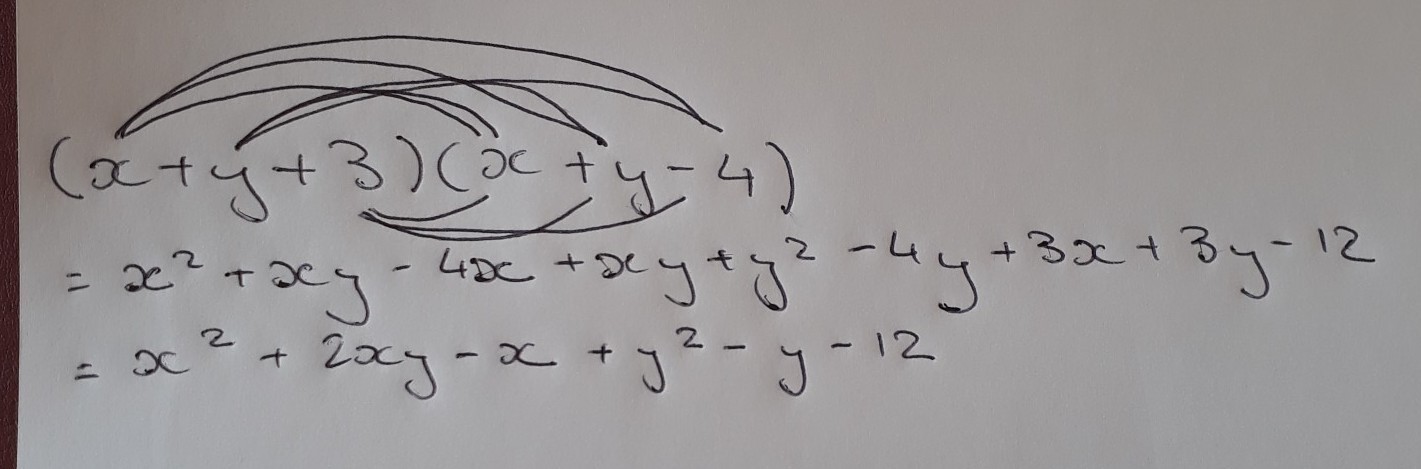 (x+y+3)(x+y-4)
= x² + xy - 4x + xy + y² - 4y + 3x + 3y - 12
= x² + 2xy - x + y² - y - 12